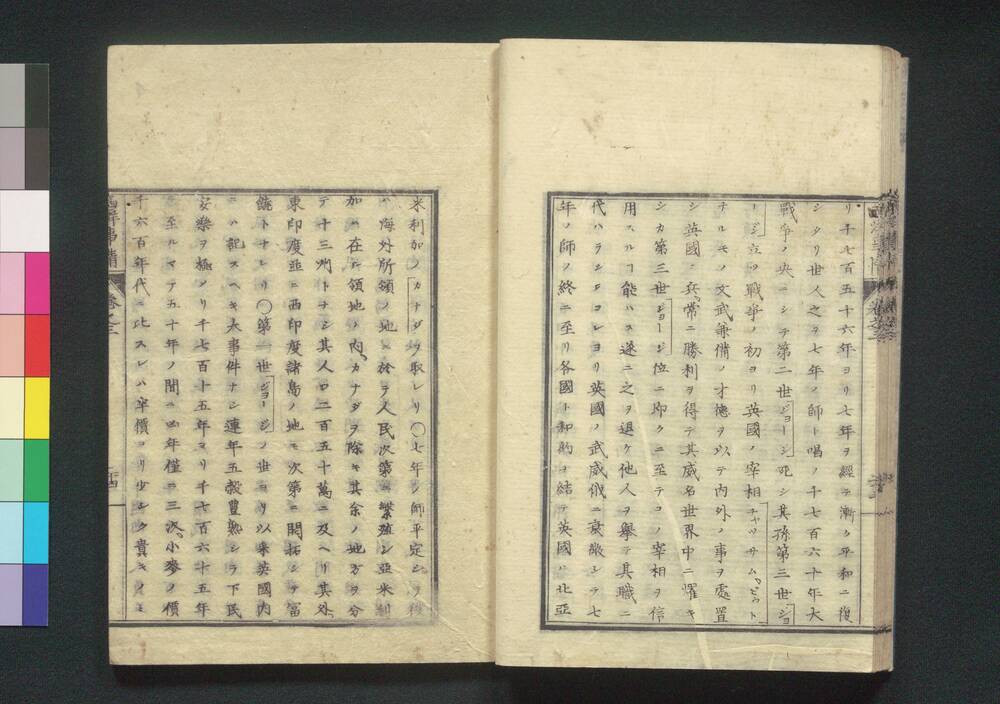 リ千七百五十六年ヨリ七年ヲ經テ漸ク平和ニ復
シタリ世人之ヲ七年ノ師ト唱ノ千七百六十年大
戰爭ノ央ニシテ第二世ジョージ死シ其孫第三世ジョ
ージ立ツ戰爭ノ初ヨリ英國ノ宰相チャッサム、ピット
ナルモノ文武兼備ノ才德ヲ以テ內外ノ事ヲ處置
シ英國ノ兵、常ニ勝利ヲ得テ其威名世界中ニ耀キ
シカ第三世ジョージ位ニ即クニ至テコノ宰相ヲ信
用スルヿ能ハス遂ニ之ヲ退ケ他人ヲ擧テ其職ニ
代ハラシムコレヨリ英國ノ武威俄ニ衰微シテ七
年ノ師ノ終ニ至リ各國ト和約ヲ結テ英國ハ北亞
米利加ノカナダヲ取レリ〇七年ノ師平定シテ後
ハ海外所領ノ地ニ於テ人民次第ニ繁殖シ亞米利
加ハ在ル領地ノ內、カナダヲ除キ其余ノ地方ヲ分
テ十三州トナシ其人口二百五十萬ニ及ヘリ其外、
東印度並ニ西印度諸島ノ地モ次第ニ開拓シテ富
饒トナレリ〇第一世ジョージノ世ヨリ以來英國內
ニハ記スヘキ大事件ナシ連年五穀豊熟シテ下民
安樂ヲ極メリ千七百十五年ヨリ千七百六十五年
ニ至ルマテ五十年ノ間ニ凶年僅ニ三次、小麥ノ價
千六百年代ニ比スレハ卒價ヨリ少シク貴キノミ
西洋事情
卷之三
十四